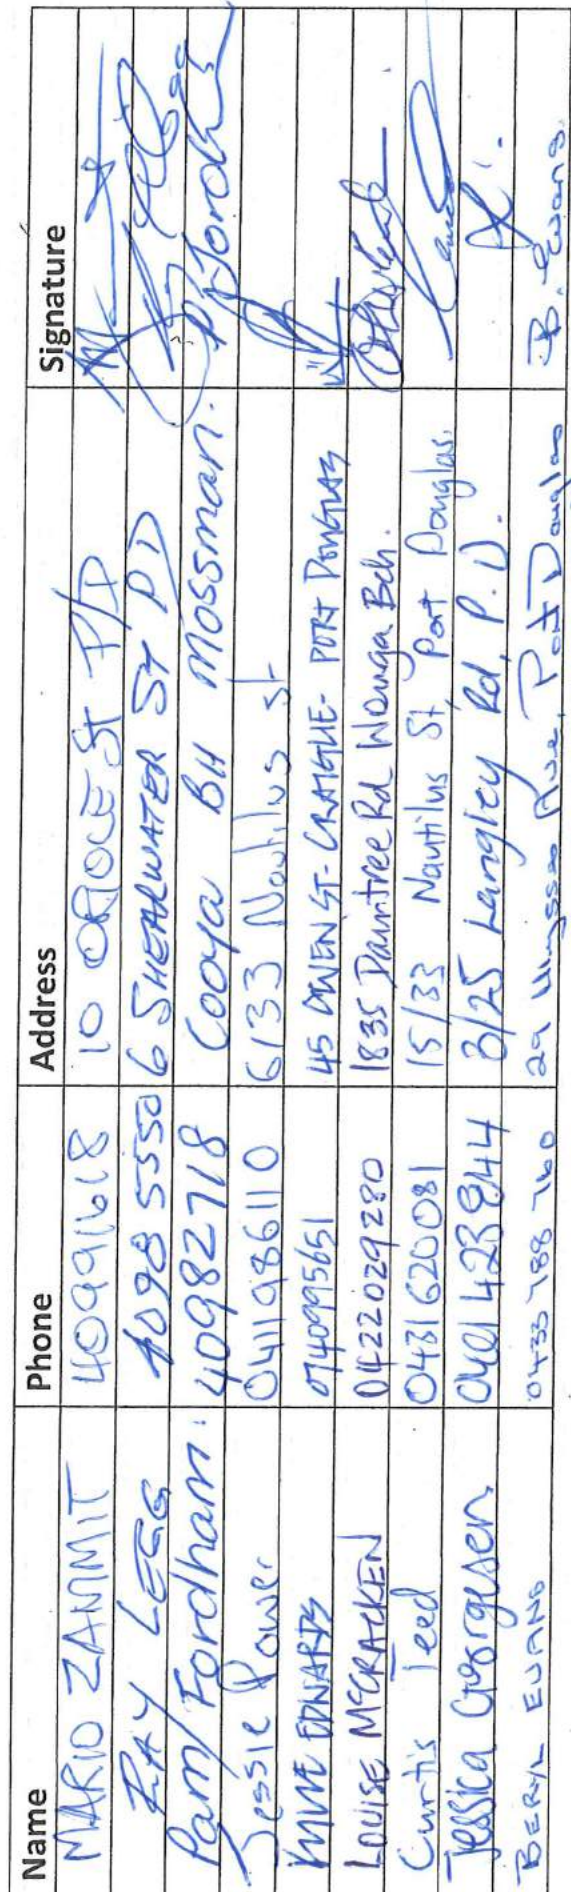 Name Phone Address Signature
MARIO ZAMMIT 40991618 10 ORIOLE St P/D
RAY LEGG 4098 5550 6 SHEARWATER ST PD
Pam Fordham. 40982718 Cooya BH Mossman. P Fordham
Jessie Power 0411986110 6/33 Nautilus st
EDWARDS 0740995651 45 OWEN ST- CRAIGLIE- PORT DOUGLAS
LOUISE McCRACKEN 0422029280 1835 Daintree Rd Wonga Bch.
Curtis Teed 0431620081 15/33 Nautilus St, Port Douglas.
Jessica 0401 423 844 3/25 Langley Rd, P.D.
BERYL EVANS 0433 788 760 29 Ave, Port Douglas B. Evans.